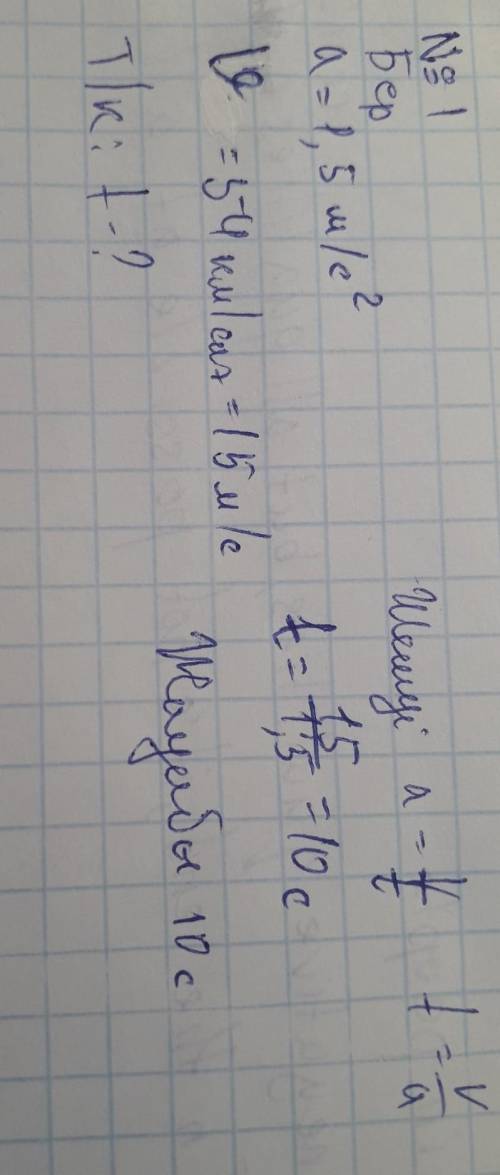 № 1
Бер
a = 1,5 м/с²
υ = 54 км/сағ = 15 м/с
Т/к: t - ?
Шешуі a = V/t t = V/a
t = 15/1,5 = 10 с
Жауабы 10 с